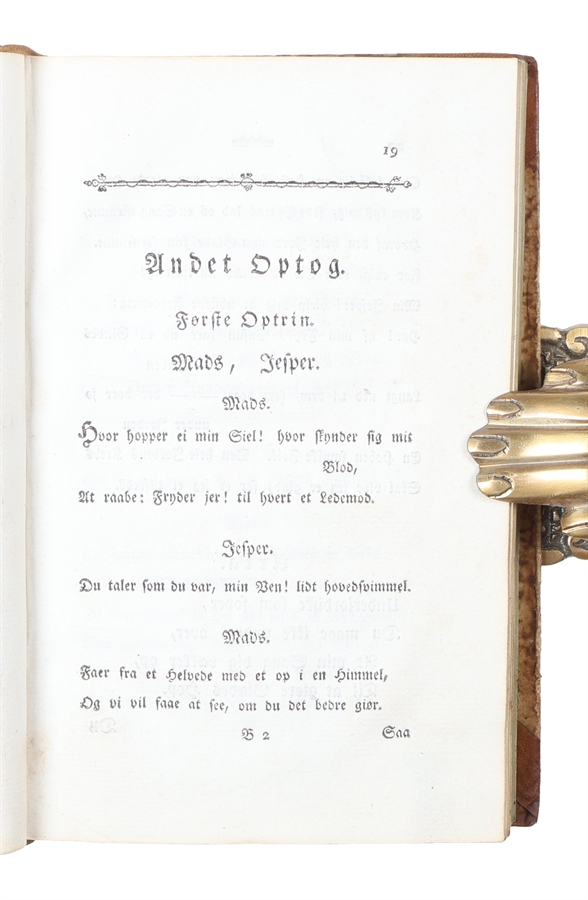 19
Andet Optog.
Første Optrin.
Mads, Jesper.
Mads.
Hvor hopper ei min Siel! hvor skynder sig mit
Blod,
At raabe: Fryder jer! til hvert et Ledemod.
Jesper.
Du taler som du var, min Ven! lidt hovedsvimmel.
Mads.
Faer fra et Helvede med et op i en Himmel,
Og vi vil faae at see, om du det bedre giør.
B 2
Saa